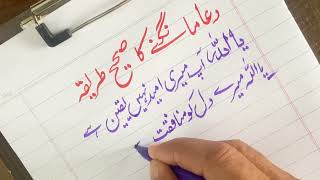 دعا مانگنے کا صحیح طریقہ
یا اللہ آپ میری امید نہیں یقین ہے
یا اللہ میرے دل کو منافقت